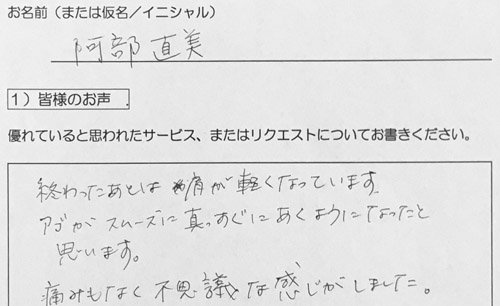 お名前（または仮名／イニシャル）
阿部 直美
１）皆様のお声
優れていると思われたサービス、またはリクエストについてお書きください。
終わったあとは 肩が軽くなっています
アゴがスムーズに真っすぐにあくようになったと
思います。
痛みもなく不思議な感じがしました。